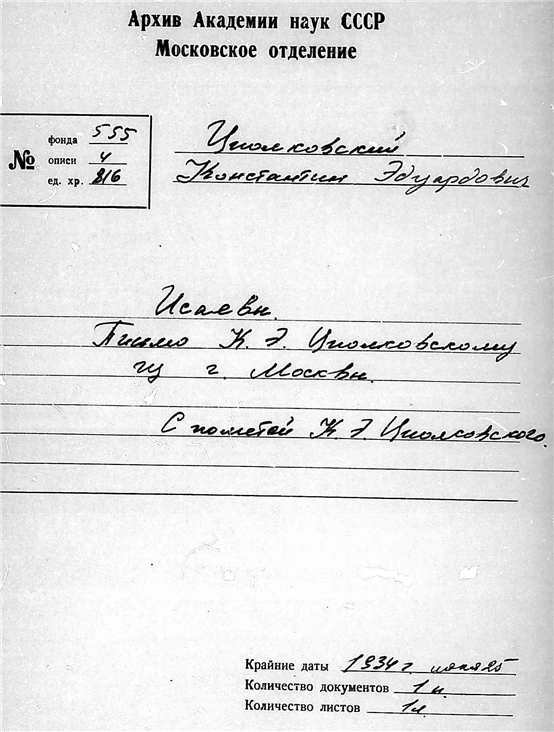 Архив Академии наук СССР
Московское отделение
№
фонда 555
описи 4
ед. хр. 816
Циолковский
Константин Эдуардович
Исаевы.
Письмо К. Э. Циолковскому
из г. Москвы.
С пометой К. Э. Циолковского.
Крайние даты 1934 г.
Количество документов 1
Количество листов 1л.